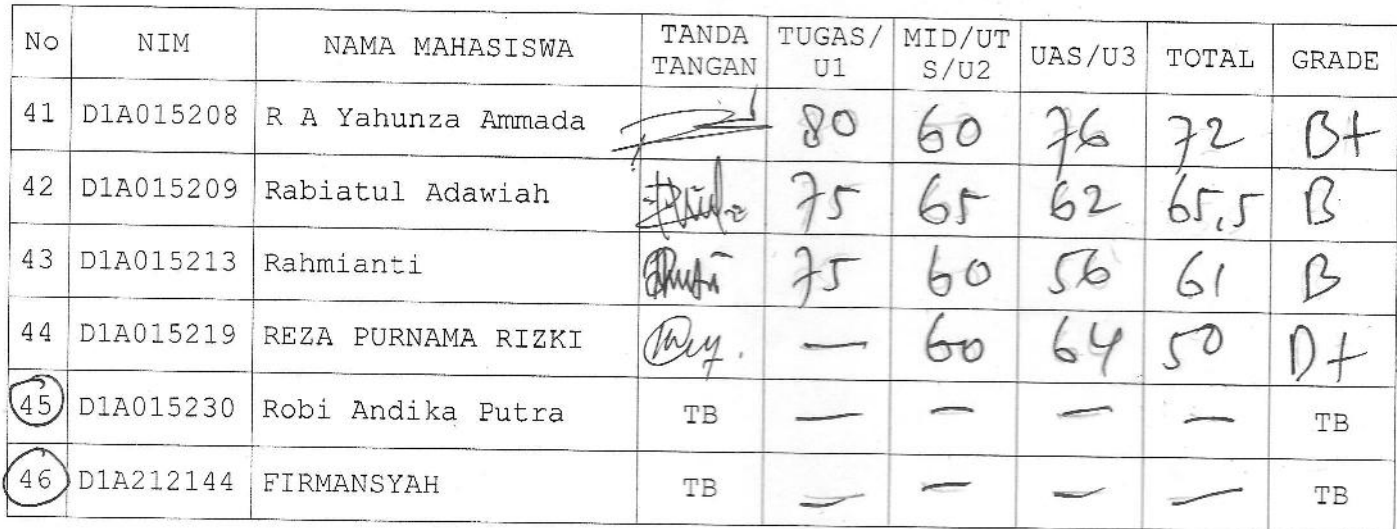 No NIM NAMA MAHASISWA TANDA TANGAN TUGAS/U1 MID/UTS/U2 UAS/U3 TOTAL GRADE
41 D1A015208 R A Yahunza Ammada 80 60 76 72 B+
42 D1A015209 Rabiatul Adawiah 75 65 62 65,5 B
43 D1A015213 Rahmianti 75 60 56 61 B
44 D1A015219 REZA PURNAMA RIZKI — 60 64 50 D+
45 D1A015230 Robi Andika Putra TB — — — — TB
46 D1A212144 FIRMANSYAH TB — — — — TB